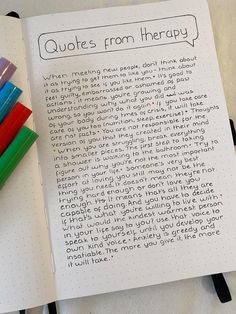 Quotes from therapy
When meeting new people, don't think about
it as trying to get them to like you - think about
it as trying to see is you like them." It's good to
feel guilty, embarrassed or ashamed of past
actions; it means you're growing and
understanding why what you did was
wrong, so you won't do it again." If you take care
of your body during times of crisis, it will take
care of you too (nutrition, sleep, exercise)." Thoughts
are not facts." You are not responsible for the
version of you they created in their mind
" When you are struggling, break everything
into smaller pieces. The first step to taking
a shower is walking to the bathroom." Try to
figure out why you're not the most important
person in your life." Someone's very best
effort at loving you still may not be the
thing you need. It doesn't mean they're not
trying hard enough or don't love you
enough. It means that's all they are
capable of doing. And you have to decide
if that's what you're willing to live with."
What would the kindest warmest person
in your life say to you? use that voice to
speak to yourself until you develop your
own kind voice." Anxiety is greedy and
insatiable. The more you give it, the more
it will take."